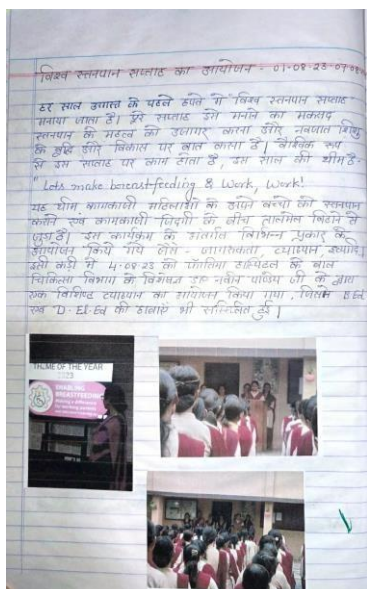 विश्व स्तनपान सप्ताह का आयोजन - 01-08-23-07-08
हर साल अगस्त के पहले हफ्ते में "विश्व स्तनपान सप्ताह"
मनाया जाता है। पूरे सप्ताह इसे मनाने का मकसद
स्तनपान के महत्व को उजागर करना और नवजात शिशु
के वृद्धि और विकास पर बात करना है। वैश्विक रूप
से इस सप्ताह पर काम होता है, इस साल की थीम है-
"Lets make breastfeeding & Work, Work!
यह थीम कामकाजी महिलाओं के अपने बच्चों को स्तनपान
कराने एवं कामकाजी जिंदगी के बीच तालमेल बिठाने से
जुड़ा है। इस कार्यक्रम के अंतर्गत विभिन्न प्रकार के
आयोजन किये गये जैसे - जागरूकता, व्याख्यान, इत्यादि।
इसी कड़ी में 4-08-23 को फातिमा हास्पिटल के बाल
चिकित्सा विभाग के डा० नवीन जी के द्वारा
एक विशिष्ट व्याख्यान का आयोजन किया गया, जिसमें B.Ed
एवं D.El.Ed की छात्राएं भी सम्मिलित हुई।
THEME OF THE YEAR
2023
ENABLING
BREASTFEEDING
Making a difference
for working parents